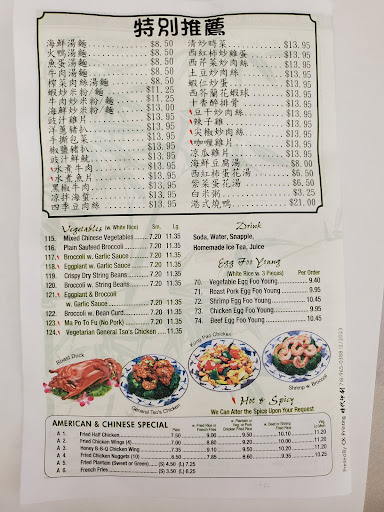 特別推薦
海鮮湯麵 $8.50
火鴨湯麵 $8.50
魚蛋湯麵 $8.50
牛肉湯麵 $8.50
榨菜肉絲湯麵 $8.50
蝦炒米粉/麵 $11.25
牛肉炒米粉/麵 $11.25
海鮮炒米粉/麵 $13.00
豉汁雞片 $13.95
洋蔥豬扒 $13.95
手撕包菜 $13.95
椒鹽豬扒 $13.95
豉汁鮮魷 $13.95
水煮牛肉 $13.95
水煮魚片 $13.95
黑椒牛肉 $13.95
涼拌海蜇 $13.95
四季豆肉絲 $13.95
清炒時菜 $13.95
西紅柿炒雞蛋 $13.95
西芹菜炒肉絲 $13.95
土豆炒肉絲 $13.95
蝦仁炒蛋 $13.95
西芥蘭花蝦球 $13.95
十香醉排骨 $13.95
豆干炒肉絲 $13.95
辣子雞 $13.95
尖椒炒肉絲 $13.95
咖喱雞片 $13.95
涼瓜雞片 $13.95
海鮮豆腐湯 $8.00
西紅柿蛋花湯 $6.50
紫菜蛋花湯 $6.50
白米粥 $3.25
港式燒鴨 $21.00
Vegetables (w. White Rice) Sm. Lg.
115. Mixed Chinese Vegetables 7.20 11.35
116. Plain Sauteed Broccoli 7.20 11.35
117. Broccoli w. Garlic Sauce 7.20 11.35
118. Eggplant w. Garlic Sauce 7.20 11.35
119. Crispy Dry String Beans 7.20 11.35
120. Broccoli w. String Beans 7.20 11.35
121. Eggplant & Broccoli
w. Garlic Sauce 7.20 11.35
122. Broccoli w. Bean Curd 7.20 11.35
123. Ma Po To Fu (No Pork) 7.20 11.35
124. Vegetarian General Tso's Chicken 11.35
Drink
Soda, Water, Snapple,
Homemade Ice Tea, Juice
Egg Foo Young
(White Rice w. 3 Pieces) Per Order
70. Vegetable Egg Foo Young 9.40
71. Roast Pork Egg Foo Young 9.95
72. Shrimp Egg Foo Young 10.45
73. Chicken Egg Foo Young 9.95
74. Beef Egg Foo Young 10.45
Roast Duck
General Tso's Chicken
Kung Pao Chicken
Shrimp w. Broccoli
Hot & Spicy
We Can Alter the Spice Upon Your Request
AMERICAN & CHINESE SPECIAL
Plain
w. Fried Rice or French Fries
w. Plantain or Veg. or Pork Chicken Fried Rice
w. Beef or Shrimp Fried Rice
A 1. Fried Half Chicken 7.50 9.00 9.50 10.10 11.20
A 2. Fried Chicken Wings (4) 7.00 8.80 9.20 10.00 11.20
A 3. Honey B-B-Q Chicken Wing 7.35 9.10 9.50 10.10 11.20
A 4. Fried Chicken Nuggets (10) 6.50 7.85 8.60 9.35 10.25
A 5. Fried Plantain (Sweet or Green) (S) 4.50 (L) 7.25
A 6. French Fries (S) 3.50 (L) 6.25
Printed By CK Printing